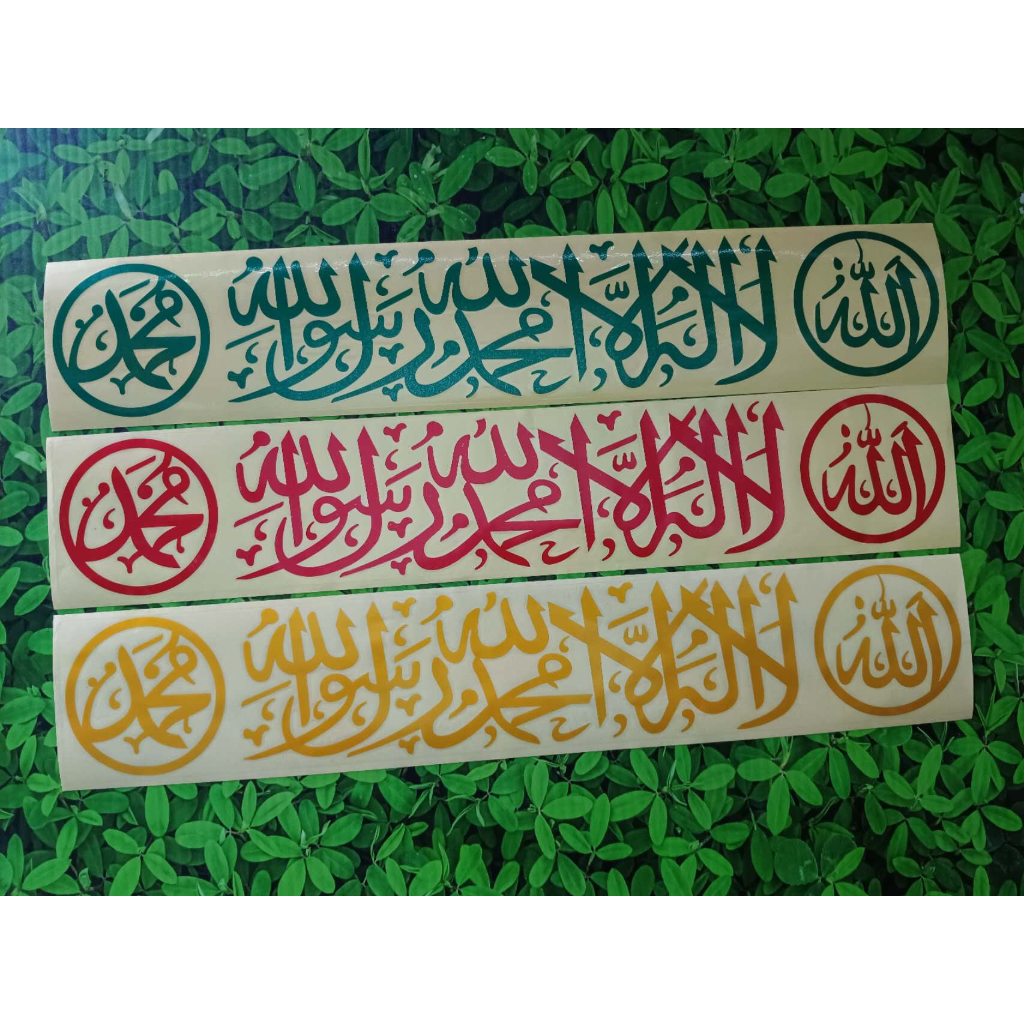 الله لا إله إلا الله محمد رسول الله محمد
الله لا إله إلا الله محمد رسول الله محمد
الله لا إله إلا الله محمد رسول الله محمد